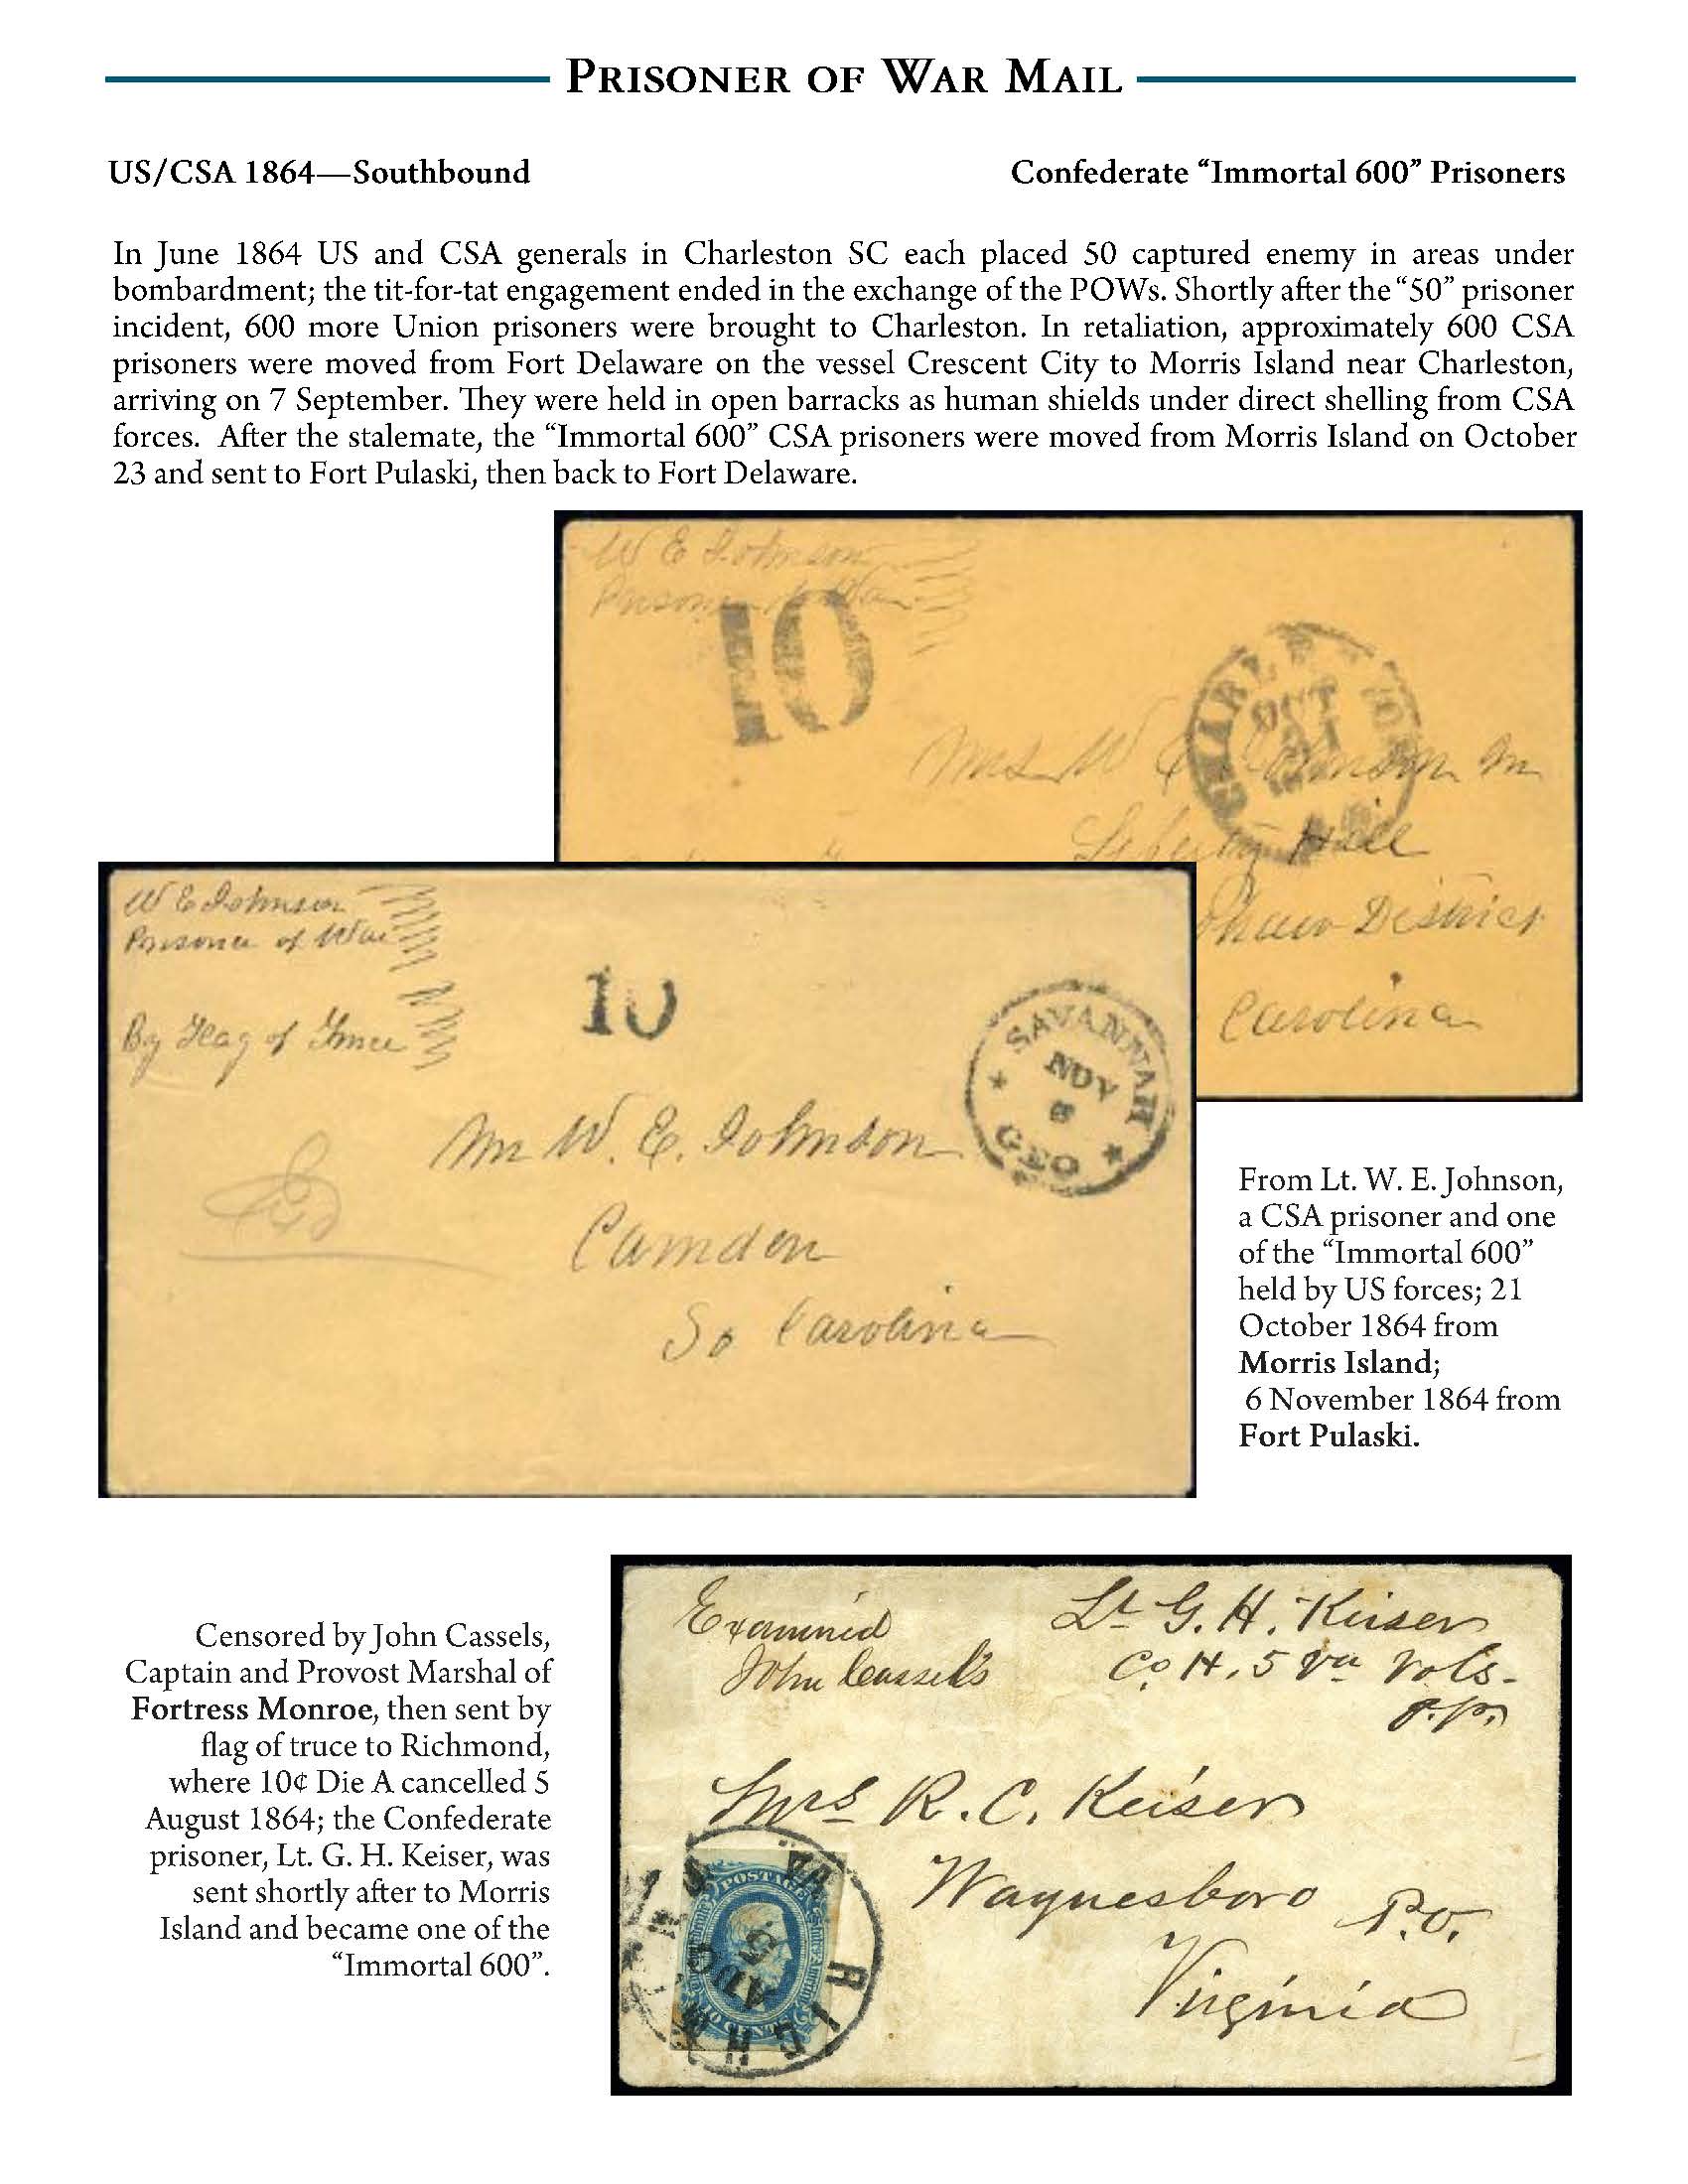 PRISONER OF WAR MAIL
US/CSA 1864—Southbound
Confederate “Immortal 600” Prisoners
In June 1864 US and CSA generals in Charleston SC each placed 50 captured enemy in areas under
bombardment; the tit-for-tat engagement ended in the exchange of the POWs. Shortly after the “50” prisoner
incident, 600 more Union prisoners were brought to Charleston. In retaliation, approximately 600 CSA
prisoners were moved from Fort Delaware on the vessel Crescent City to Morris Island near Charleston,
arriving on 7 September. They were held in open barracks as human shields under direct shelling from CSA
forces. After the stalemate, the “Immortal 600” CSA prisoners were moved from Morris Island on October
23 and sent to Fort Pulaski, then back to Fort Delaware.
W E Johnson
Prisoner of War
10
OCT
21
Mrs W E Johnson
Liberty Hill
District
Carolina
W E Johnson
Prisoner of War
By Flag of Truce
10
SAVANNAH
NOV
6
GEO
Mr W. E. Johnson
Camden
So Carolina
From Lt. W. E. Johnson,
a CSA prisoner and one
of the “Immortal 600”
held by US forces; 21
October 1864 from
Morris Island;
6 November 1864 from
Fort Pulaski.
Censored by John Cassels,
Captain and Provost Marshal of
Fortress Monroe, then sent by
flag of truce to Richmond,
where 10¢ Die A cancelled 5
August 1864; the Confederate
prisoner, Lt. G. H. Keiser, was
sent shortly after to Morris
Island and became one of the
“Immortal 600”.
Examined
John Cassels
Lt G. H. Keiser
Co. H. 5 Va Vols.
Mrs R. C. Keiser
Waynesboro P.O.
Virginia
POSTAGE
TEN CENTS
RICHMOND VA
AUG
5